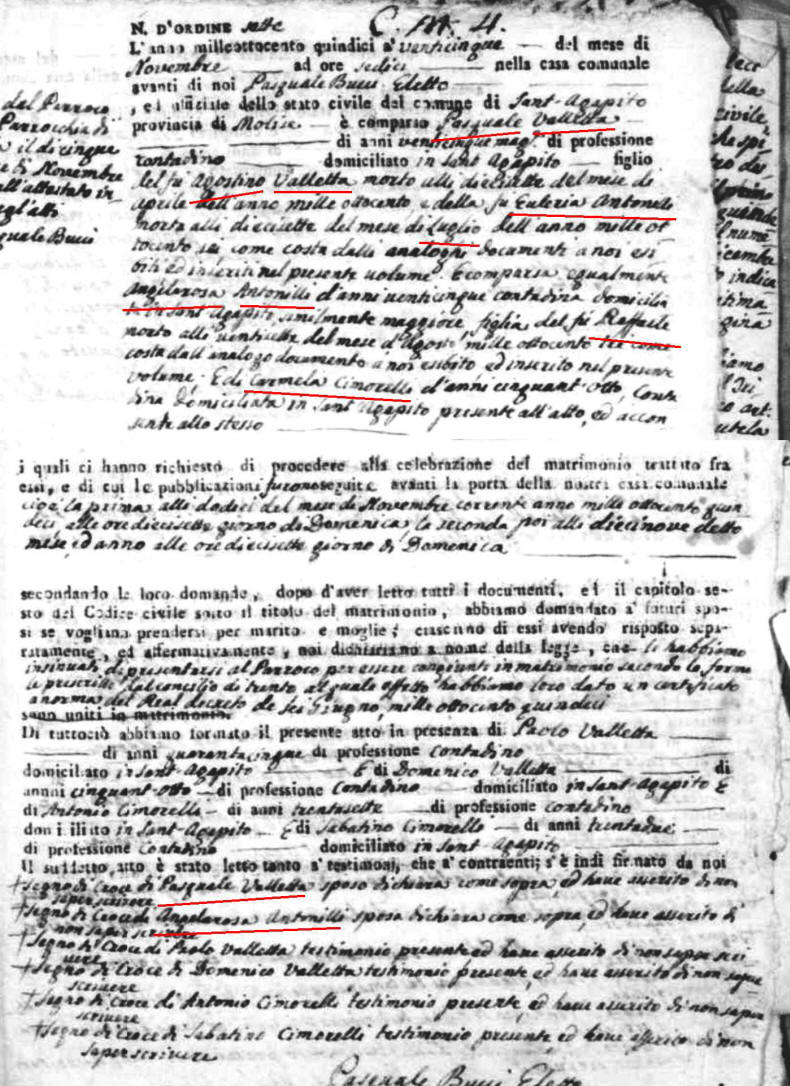 N. D'ORDINE sette
L'anno milleottocento quindici a' venticinque del mese di
Novembre ad ore sedici nella casa comunale
avanti di noi Pasquale Bucci Eletto
, ed uffiziale dello stato civile del comune di Sant-Agapito
provincia di Molise è comparso Pasquale Valletta
di anni venticinque mag. di professione
Contadino domiciliato in Sant Agapito figlio
del fu Agostino Valletta morto alli diecisette del mese di
aprile dell'anno mille ottocento, e della fu Euleria Antonelli
morta alli diecisette del mese di Luglio dell'anno mille ot
tocento sei come costa dalli analoghi documenti a noi esi
biti ed inseriti nel presente volume. E comparsa egualmente
Angelarosa Antonilli d'anni venticinque contadina domicilia
ta in Sant Agapito, similmente maggiore, figlia del fu Raffaele
morto alli ventisette del mese d'Agosto mille ottocento tre come
costa dall'analogo documento a noi esibito ed inserito nel presente
volume, E di Carmela Cimorelli d'anni cinquant'otto, Conta
dina domiciliata in Sant Agapito presente all'atto, ed accon
sente allo stesso
dal Parroco
Parrocchia di
a il dì cinque
e di Novembre
all'attestato in-
agl'atti
quale Bucci
i quali ci hanno richiesto di procedere alla celebrazione del matrimonio trattato fra
essi, e di cui le pubblicazioni furono seguite avanti la porta della nostra casa comunale
cioè la prima alli dodici del mese di Novembre corrente anno mille ottocento quin
deci alle ore diecisette giorno di Domenica, la seconda poi alli diecinove detto
mese, ed anno alle ore diecisette giorno di Domenica
secondando le loro domande, dopo d'aver letto tutti i documenti, ed il capitolo se-
sto del Codice civile sotto il titolo del matrimonio, abbiamo domandato a' futuri spo-
si se vogliano prendersi per marito e moglie; ciascuno di essi avendo risposto sepa-
ratamente, ed affermativamente, noi dichiariamo a nome della legge, che li habbiamo
insinuati di presentarsi al Parroco per essere congiunti in matrimonio secondo le forme
le prescritte dal concilio di trento, al quale effetto habbiamo loro dato un certificato
a norma del Real decreto de sei Giugno, mille ottocento quindeci
sono uniti in matrimonio.
Di tuttociò abbiamo formato il presente atto in presenza di Paolo Valletta
di anni quarantacinque di professione Contadino
domiciliato in Sant-Agapito E di Domenico Valletta di
anni cinquant'otto di professione Contadino domiciliato in Sant-Agapito E
di Antonio Cimorelli di anni trentasette di professione contadino
domiciliato in Sant-Agapito E di Sabatino Cimorello di anni trentadue
di professione Contadino domiciliato in Sant-Agapito
Il suddetto atto è stato letto tanto a' testimonj, che a' contraenti; s'è indi firmato da noi
+ Segno di Croce di Pasquale Valletta sposo dichiara come sopra, ed have asserito di non
saper scrivere
+ Segno di Croce di Angelarosa Antonilli sposa dichiara come sopra, ed have asserito di
non saper scrivere
+ Segno di Croce di Paolo Valletta testimonio presente ed have asserito di non saper scri
vere
+ Segno di Croce di Domenico Valletta testimonio presente, ed have asserito di non saper
scrivere
+ Segno di Croce di Antonio Cimorelli testimonio presente, ed have asserito di non saper
scrivere
+ Segno di Croce di Sabatino Cimorelli testimonio, presente, ed have asserito di non
saper scrivere
Pasquale Bucci Eletto